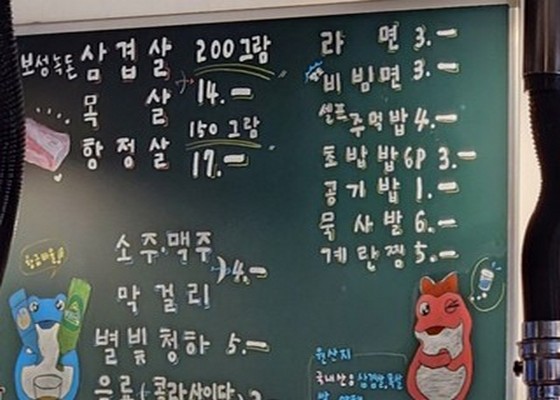 보성녹돈 삼겹살 200그람
목살 14.-
항정살 150그람
17.-
소주.맥주
막걸리 4.-
별빛청하 5.-
음료(콜라사이다)
라면 3.-
비빔면 3.-
셀프 주먹밥 4.-
초밥밥 6P 3.-
공기밥 1.-
묵사발 6.-
계란찜 5.-
원산지
국내산 삼겹살,목살